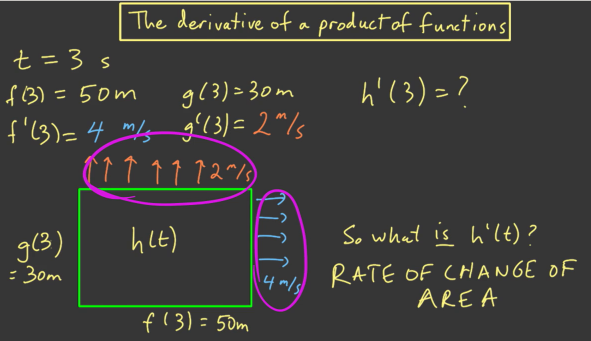 The derivative of a product of functions
t = 3 s
f(3) = 50m
g(3)=30m
h'(3) = ?
f'(3)= 4 m/s
g'(3)= 2 m/s
2 m/s
g(3)
= 30m
h(t)
4 m/s
So what is h'(t)?
RATE OF CHANGE OF
AREA
f(3) = 50m